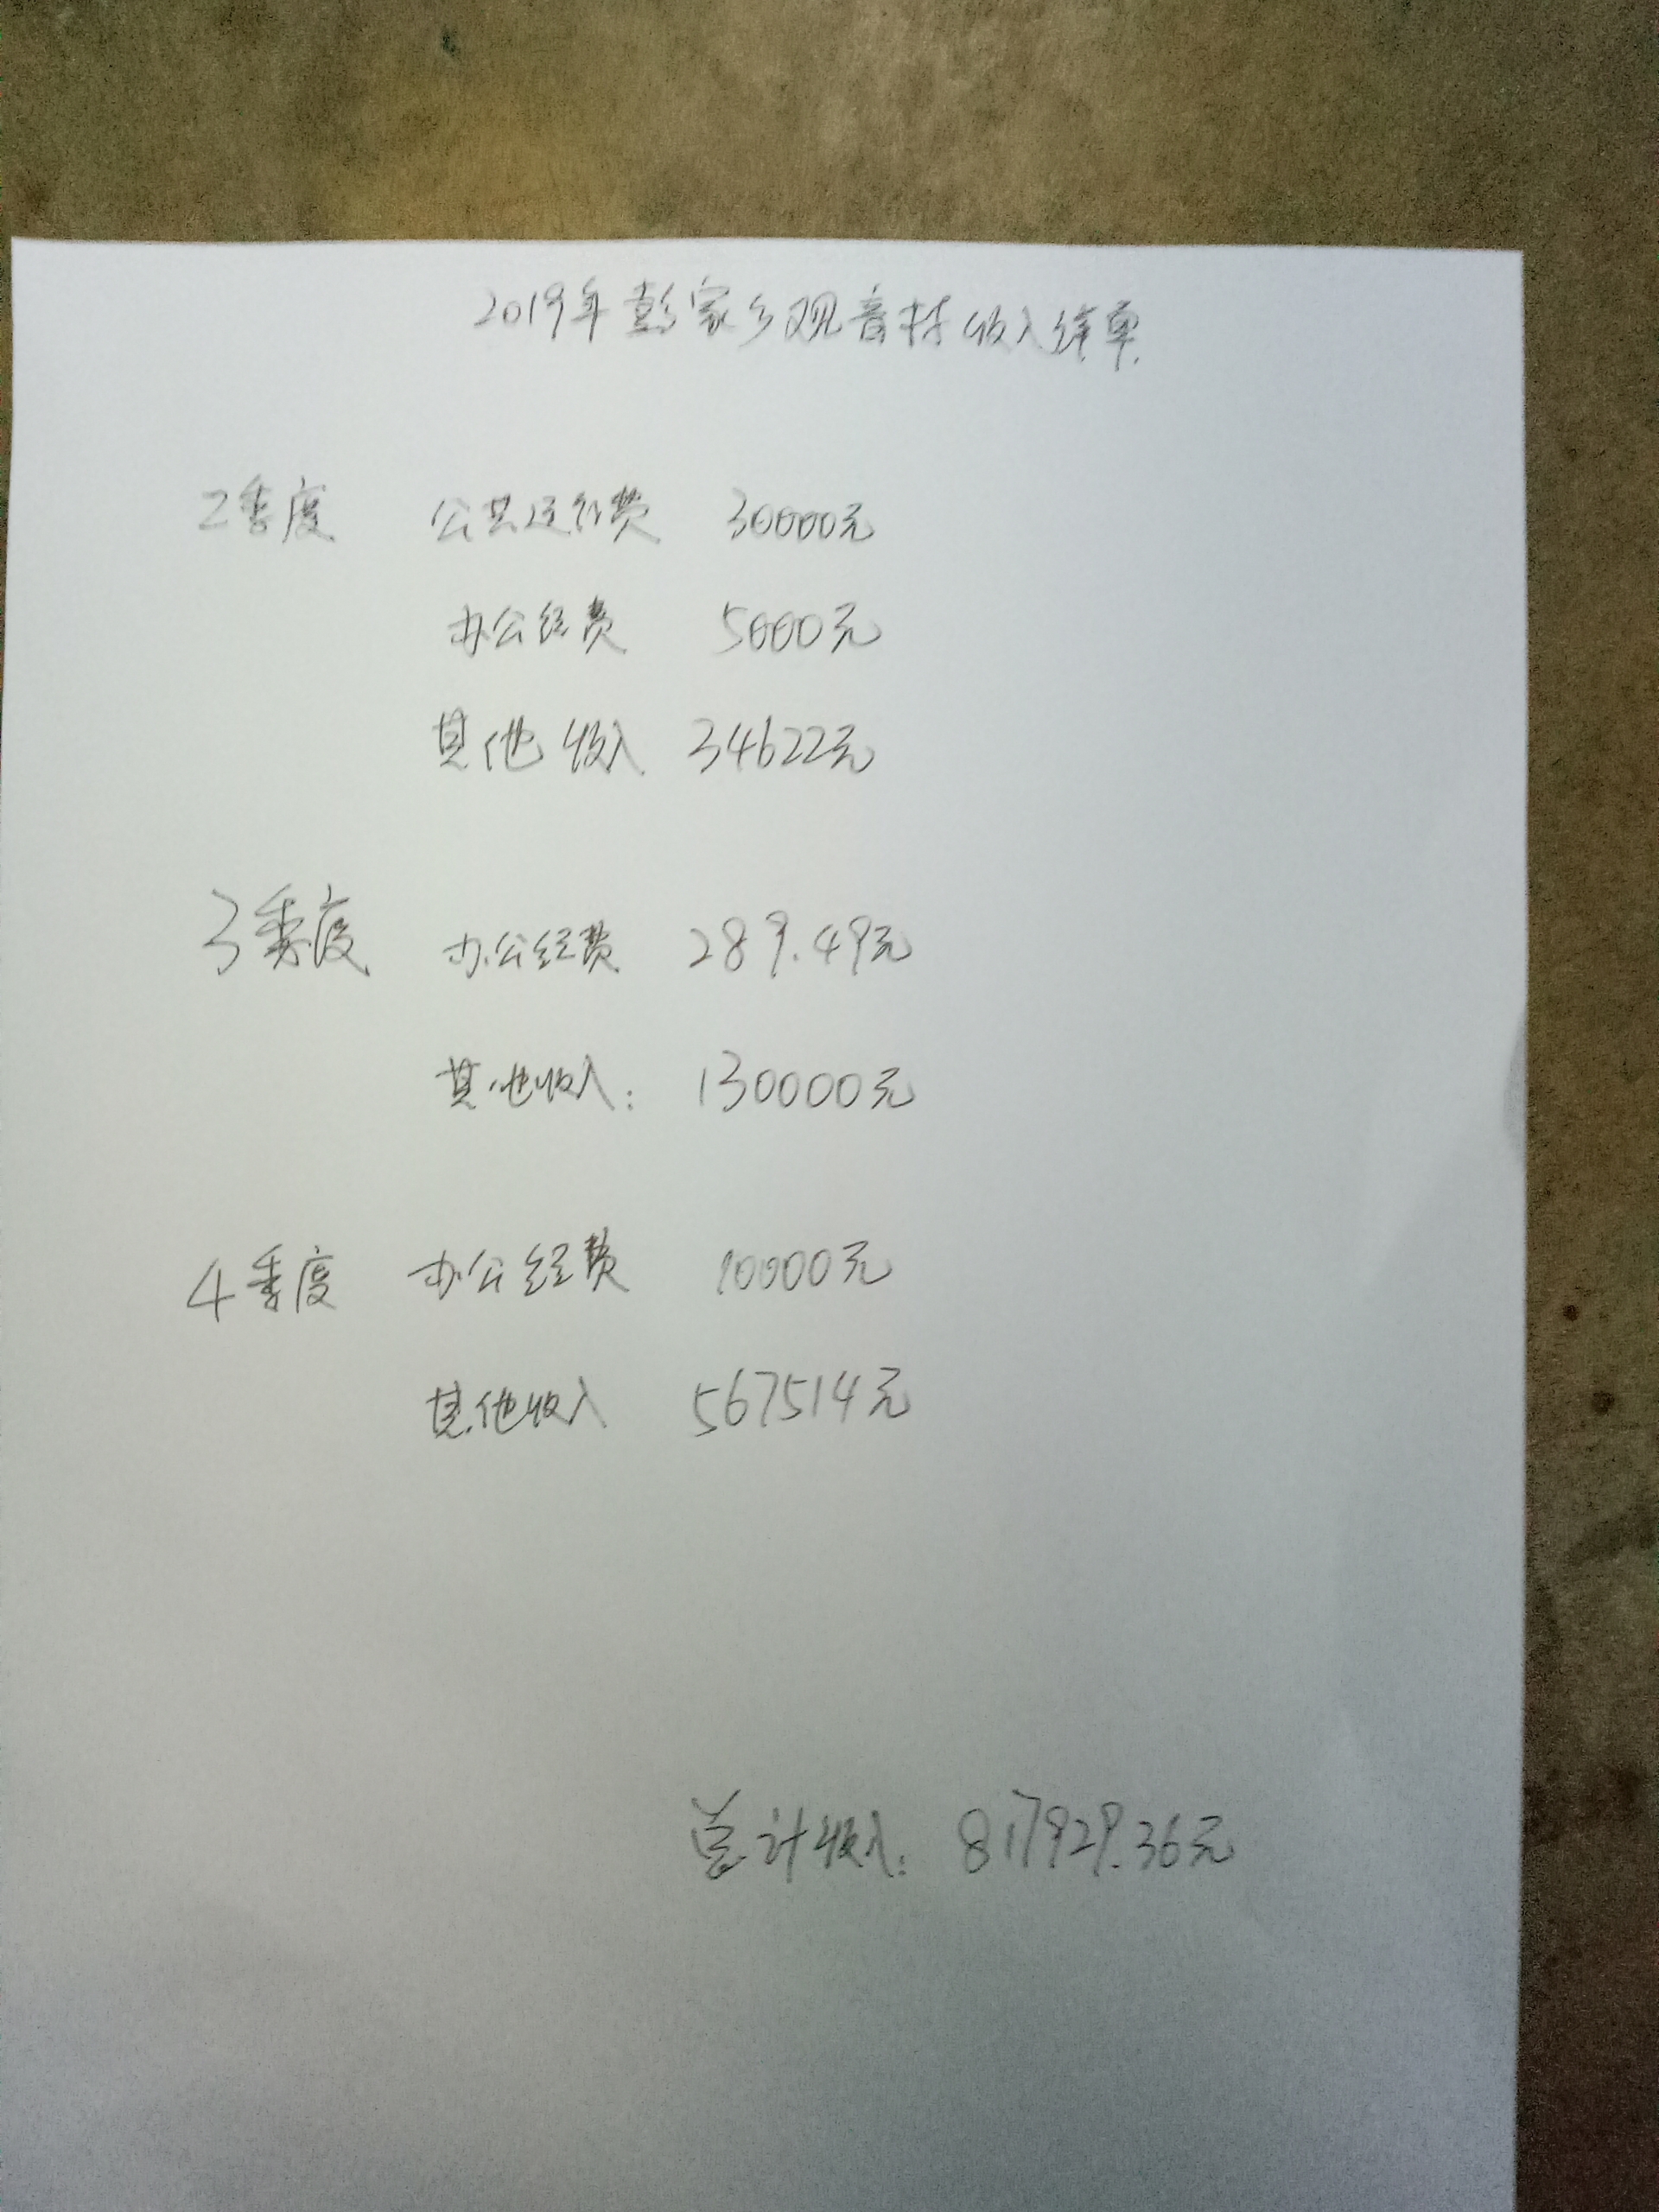 2019年彭家乡观音村收入清单
2季度 公共运行费 30000元
办公经费 5000元
其他收入 34622元
3季度 办公经费 289.49元
其他收入: 130000元
4季度 办公经费 10000元
其他收入 567514元
总计收入: 817929.36元